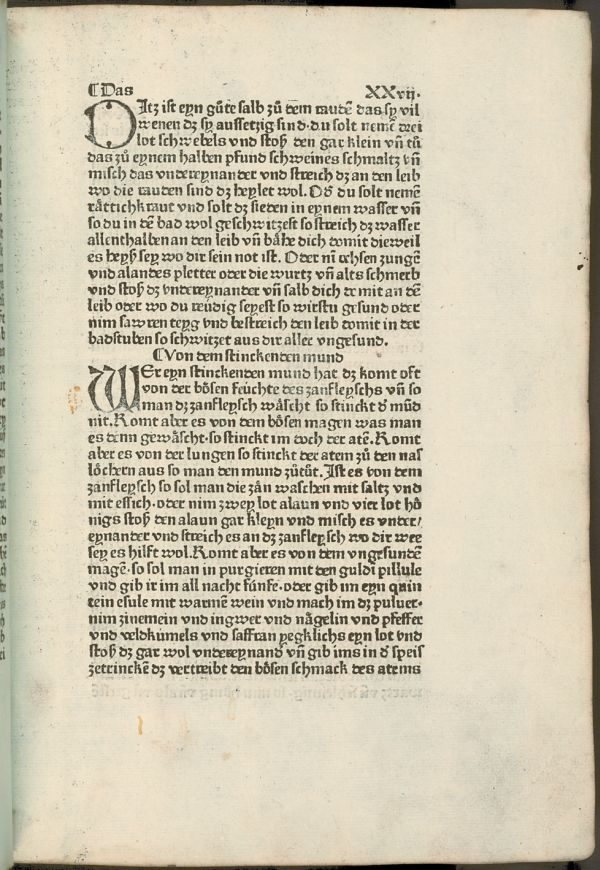 ¶Das XXvij.
DItz ist eyn gůte salb zů dem raudē das sy vil
wenen dz sy aussetzig sind·du solt nemē drei
lot schwebels vnd stoß den gar klein vn̄ tů
das zů eynem halben pfund schweines schmaltz vn̄
misch das vndereynander vnd streich dz an den leib
wo die rauden sind dz heylet wol. Od̕ du solt nemē
rättichkraut vnd solt dz sieden in eynem wasser vn̄
so du in dē bad wol geschwitzest so streich dz wasser
allenthalben an den leib vn̄ bähe dich domit dieweil
es heyß sey wo dir sein not ist. Oder nī ochsen zungen
vnd alandes pletter oder die wurtz vn̄ alts schmerb
vnd stoß dz vndereynander vn̄ salb dich de mit an dē
leib oder wo du reüdig seyest so wirstu gesund oder
nim sawren teyg vnd bestreich den leib domit in der
badstuben so schwitzet aus dir aller vngesund.
¶Von dem stinckenden mund
WEr eyn stinckenden mund hat dz komt oft
von der bösen feüchte des zanfleyschs vn̄ so
man dz zanfleysch wäscht so stinckt d̕ mūd
nit. Komt aber es von dem bösen magen was man
es denn gewäscht·so stinckt im doch der atē. Komt
aber es von der lungen so stinckt der atem zů den nas
löchern aus so man den mund zůtůt. Ist es von dem
zanfleysch so sol man die zän waschen mit saltz vnd
mit essich·oder nim zwey lot alaun vnd vier lot hö
nigs stoß den alaun gar kleyn vnd misch es vnder/
eynander vnd streich es an dz zanfleysch wo dir wee
sey es hilft wol. Komt aber es von dem vngesundē
magē·so sol man in purgieren mit den guldī pillule
vnd gib ir im all nacht fünfe·oder gib im eyn quin
tein esule mit warmē wein vnd mach im dz puluer·
nim zinemein vnd ingwer vnd nägelin vnd pfeffer
vnd veldkümels vnd saffran yegklichs eyn lot vnd
stoß dz gar wol vndereynand̕ vn̄ gib ims in d̕ speis
zetrinckē dz vertreibt den bösen schmack des atems